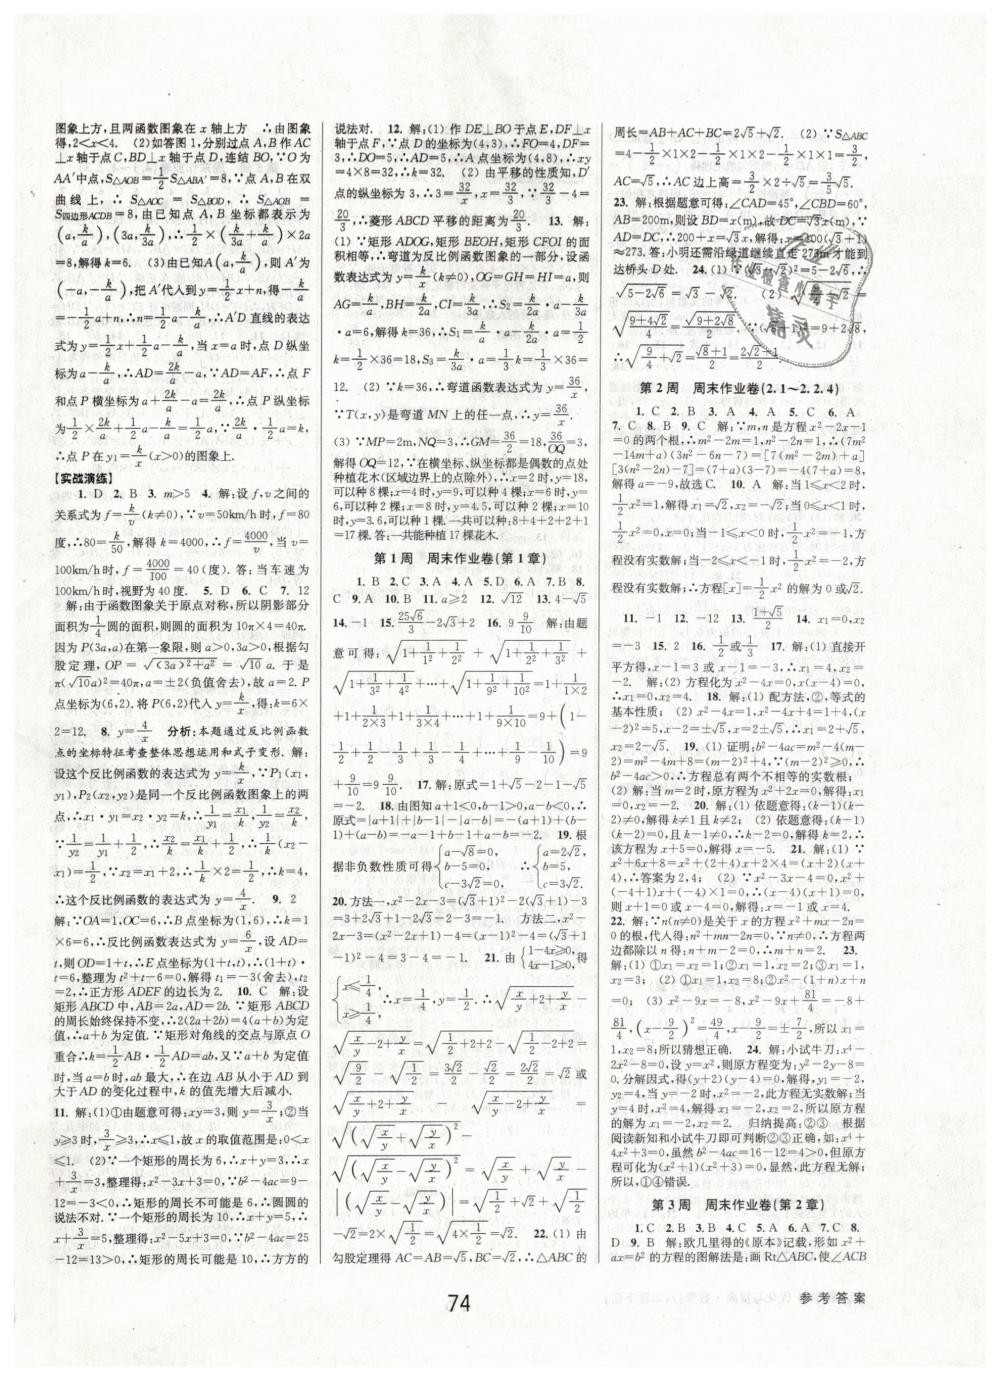 图象上方,且两函数图象在 x 轴上方 ∴由图象
得,2<x<4. (2)如答图 1,分别过点 A,B 作 AC
⊥x 轴于点 C,BD⊥x 于点 D,连结 BO,∵O 为
AA′中点,S△AOB=1/2 S△ABA′=8,∵点 A,B 在双
曲线上,∴ S△AOC = S△BOD,∴ S△AOB =
S四边形ACDB=8,由已知点 A,B 坐标都表示为
(a, k/a),(3a, k/3a),∴1/2×(k/3a+k/a)×2a
=8,解得 k=6. (3)由已知 A(a, k/a),则 A′为
(-a,-k/a),把 A′代人到 y=1/2x+n,得-k/a
=-1/2a+n,∴n=1/2a-k/a,∴A′D 直线的表达
式为 y=1/2x+1/2a-k/a,当 x=a 时,点 D 纵坐
标为 a-k/a,∴AD=2k/a-a,∵AD=AF,∴点 F
和点 P 横坐标为 a+2k/a-a=2k/a,∴点 P 纵坐标
为1/2×2k/a+1/2a-k/a=1/2a,∵2k/a·1/2a=k,
∴点 P 在 y=k/x(x>0)的图象上.
【实战演练】
1. D 2. B 3. m>5 4. 解:设 f,v 之间的
关系式为 f=k/v(k≠0),∵v=50km/h 时,f=80
度,∴80=k/50,解得 k=4000,∴f=4000/v,当 v=
100km/h 时,f=4000/100=40(度). 答:当车速为
100km/h 时,视野为 40 度. 5. D 6. C 7. 12
解:由于函数图象关于原点对称,所以阴影部分
面积为1/4圆的面积,则圆的面积为 10π×4=40π.
因为 P(3a,a)在第一象限,则 a>0,3a>0,根据勾
股定理,OP=√((3a)²+a²)=√10 a. 于是
π(√10a)²=40π,a=±2(负值舍去),故 a=2. P
点坐标为(6,2). 将 P(6,2)代人 y=k/x,得:k=6×
2=12. 8. y=4/x 分析:本题通过反比例函数
点的坐标特征考查整体思想运用和式子变形. 解:
设这个反比例函数的表达式为 y=k/x,∵P1(x1,
y1),P2(x2,y2)是同一个反比例函数图象上的两
点,∴x1·y1=x2·y2=k,∴1/y1=x1/k,1/y2=x2/k,
∵1/y2=1/y1+1/2,∴x2/k=x1/k+1/2,∴1/k(x2-
x1)=1/2,∵x2=x1+2,∴1/k×2=1/2,∴k=4,
∴这个反比例函数的表达式为 y=4/x. 9. 2
解:∵OA=1,OC=6,∴B 点坐标为(1,6),∴k=1
×6=6,∴反比例函数的表达式为 y=6/x,设 AD=
t,则 OD=1+t,∴E 点坐标为(1+t,t),∴(1+t)·
t=6,整理为 t²+t-6=0,解得 t1=-3(舍去),t2
=2,∴正方形 ADEF 的边长为 2. 10. C 解:设
矩形 ABCD 中,AB=2a,AD=2b. ∵矩形 ABCD
的周长始终保持不变,∴2(2a+2b)=4(a+b)为定
值,∴a+b 为定值. ∵矩形对角线的交点与原点 O
重合∴k=1/2AB·1/2AD=ab,又∵a+b 为定值
时,当 a=b 时,ab 最大,∴在边 AB 从小于 AD 到
大于 AD 的变化过程中,k 的值先增大后减小.
11. 解:(1)①由题意可得:xy=3,则 y=3/x;②当
y≥3 时,3/x≥3,∴x≤1,故 x 的取值范围是:0<x
≤1. (2)∵一个矩形的周长为 6,∴x+y=3,∴x+
3/x=3,整理得:x²-3x+3=0,∵b²-4ac=9-
12=-3<0,∴矩形的周长不可能是 6;∴圆圆的
说法不对. ∵一个矩形的周长为 10,∴x+y=5,∴
x+3/x=5,整理得:x²-5x+3=0,∵b²-4ac=25
-12=13>0,∴矩形的周长可能是 10,∴方方的
说法对. 12. 解:(1) 作 DE⊥BO 于点 E,DF⊥x
轴于点 F,∵点 D 的坐标为(4,3),∴FO=4,DF=
3,∴DO=5,∴AD=5,∴A 点坐标为(4,8),∴xy
=4×8=32,∴k=32. (2)由平移的性质知,D′
点的纵坐标为 3,∴3=32/x,∴x=32/3,∵32/3-4=
20/3,∴菱形 ABCD 平移的距离为20/3. 13. 解:
(1)∵矩形 ADOG,矩形 BEOH,矩形 CFOI 的面
积相等,∴弯道为反比例函数图象的一部分,设函
数表达式为 y=k/x(k≠0),OG=GH=HI=a,则
AG=k/a,BH=k/2a,CI=k/3a,∴S2=k/2a·a-k/3a
·a=6,解得 k=36,∴S1=k/a·a-k/2a·a=1/2
k=1/2×36=18,S3=k/3a·a=1/3k=1/3×36=
12. (2)∵k=36,∴弯道函数表达式为 y=36/x,
∵T(x,y)是弯道 MN 上的任一点,∴y=36/x.
(3)∵MP=2m,NQ=3,∴GM=36/2=18,36/OQ=3,
解得 OQ=12,∵在横坐标、纵坐标都是偶数的点处
种植花木(区域边界上的点除外),∴x=2 时,y=18,
可以种 8 棵;x=4 时,y=9,可以种 4 棵;x=6 时,y=
6,可以种 2 棵;x=8 时,y=4.5,可以种 2 棵;x=10
时,y=3.6,可以种 1 棵. 一共可以种:8+4+2+2+1
=17 棵. 答:一共能种植 17 棵花木.
第 1 周 周末作业卷(第 1 章)
1. B 2. C 3. A 4. A 5. D 6. A 7. B 8.
C 9. A 10. B 11. a≥2 12. √12 13. 4-√5
14. -1 15. 25√6/3-2√3+2 16. 9 9/10 解:由题
意可得:√(1+1/1²+1/2²)+√(1+1/2²+1/3²)+
√(1+1/3²+1/4²)+⋯+√(1+1/9²+1/10²)=1+1/(1×2)
+1+1/(2×3)+1+1/(3×4)+⋯+1+1/(9×10)=9+(1-
1/2+1/2-1/3+1/3-1/4+⋯+1/9-1/10)=9
+9/10=9 9/10. 17. 解:原式=1+√5-2-1-√5
=-2. 18. 由图知 a+1<0,b-1>0,a-b<0,∴
原式=|a+1|+|b-1|-|a-b|=-(a+1)+(b-
1)+(a-b)=-a-1+b-1+a-b=-2. 19. 根
据非负数性质可得{a-√8=0, b-5=0, c-3√2=0, ∴{a=2√2, b=5, c=3√2.
20. 方法一,x²-2x-3=(√3+1)²-2(√3+1)-3
=3+2√3+1-2√3-2-3=-1. 方法二,x²-
2x-3=(x²-2x+1)-4=(x-1)²-4=(√3+1
-1)²-4=3-4=-1. 21. 由{1-4x≥0, 4x-1≥0,得
{x≤1/4, x≥1/4,∴x=1/4,y=1/2. ∴√(x/y+2+y/x)-
√(x/y-2+y/x)=√(1/2+2+2)-√(1/2-2+2)=
√(9/2)-√(1/2)=3√2/2-√2/2=2√2/2=√2或
√(x/y+2+y/x) - √(x/y-2+y/x) =
√((√(x/y)+√(y/x))²)-
√((√(x/y)-√(y/x))²)=√(x/y)+√(y/x)-
|√(x/y)-√(y/x)|=√(1/2)+√2+√(1/2)
-√2=2×√(1/2)=√(4×1/2)=√2. 22. (1)由
勾股定理得 AC=AB=√5,BC=√2,∴△ABC 的
周长=AB+AC+BC=2√5+√2. (2)∵S△ABC
=4-1/2×1×2-1/2×1×2-1/2×1×1=3/2,
AC=√5,∴AC 边上高=3/2×2÷√5=3/5√5.
23. 解:根据题意可得:∠CAD=45°,∠CBD=60°,
AB=200m,则设 BD=x(m),故 DC=√3x(m),∵
AD=DC,∴200+x=√3x,解得:x=100(√3+1)
≈273. 答:小明还需沿绿道继续直走 273m 才能到
达桥头 D 处. 24. (1)∵(√3-√2)²=5-2√6,∴
√(5-2√6)=√3-√2. (2)
√((9+4√2)/4)=√((9+2√8)/4),∵(√8+1)²=9+2√8,
∴√(9/4+√2)=(√8+1)/2=(2√2+1)/2.
第 2 周 周末作业卷(2.1～2.2.4)
1. C 2. B 3. A 4. A 5. C 6. A
7. C 8. B 9. C 解:∵m,n 是方程 x²-2x-1
=0 的两个根,∴m²-2m=1,n²-2n=1,∴(7m²
-14m+a)(3n²-6n-7)=[7(m²-2m)+a]
[3(n²-2n)-7]=(7+a)(3-7)=-4(7+a)=8,
解得 a=-9,故选 C. 10. A 解:当 1≤x<2 时,
1/2x²=1,解得:x1=√2,x2=-√2;当 0≤x<1 时,
1/2x²=0,x=0;当-1≤x<0 时,1/2x²=-1,方程
没有实数解;当-2≤x<-1 时,1/2x²=-2,方
程没有实数解;∴方程[x]=1/2x² 的解为 0 或√2.
11. -1 12. -12 13. (1+√5)/2 14. x1=0,x2
=-3 15. 2 16. 1/2或1/3 17. 解:(1)直接开
平方得,x-1=3 或 x-1=-3,∴x1=4,x2=
-2. 解:(2)方程化为 x²-4x=0,x(x-4)=0,
∴x1=0,x2=4. 18. 解:(1)配方法,②,等式的
基本性质;(2)x²-4x=1,x²-4x+4=1+4,(x
-2)²=5,x-2=±√5,x=2±√5,∴x1=2+√5,
x2=2-√5. 19. (1)证明:b²-4ac=m²-4(m-
2)=m²-4m+8=(m-2)²+4,∵(m-2)²≥0,∴
b²-4ac>0,∴方程总有两个不相等的实数根;
(2)解:当 m=2 时,原方程为 x²+2x=0,解得:x1
=0,x2=-2. 20. 解:(1)依题意得:(k-1)(k-
2)≠0,解得 k≠1 且 k≠2;(2)依题意得:(k-1)
(k-2)=0,且 k-1≠0,∴k-2=0,解得 k=2,∴
该方程为 x+5=0,解得 x=-5. 21. 解:(1)∵
x²+6x+8=x²+(2+4)x+2×4=(x+2)(x+
4),∴答案为 2,4;(2)∵x²-3x-4=0,x²+
(-4+1)x+(-4)×1=0,∴(x-4)(x+1)=0,
则 x+1=0 或 x-4=0,解得:x=-1 或 x=4.
22. 解:∵n(n≠0)是关于 x 的方程 x²+mx-2n=
0 的根,代人得:n²+mn-2n=0,∵n≠0,∴方程两
边都除以 n 得:n+m-2=0,∴m+n=2. 23.
解:(1)①x1=x2=1;②x1=1,x2=2;③x1=1,
x2=3;(2)①x1=1,x2=8;②x²-(1+n)x+n
=0;(3)x²-9x=-8,x²-9x+81/4=-8+
81/4,(x-9/2)²=49/4,x-9/2=±7/2,所以 x1=
1,x2=8;所以猜想正确. 24. 解:小试牛刀:x⁴-
2x²-8=0,设 y=x²,则原方程变为:y²-2y-8=
0,分解因式,得(y+2)(y-4)=0,解得,y1=-2,
y2=4,当 y=-2 时,x²=-2,此方程无实数解;当
y=4 时,x²=4,解得 x1=-2,x2=2,所以原方程
的解为 x1=-2,x2=2. 归纳提高:②③ 根据
阅读新知和小试牛刀即可判断②③正确,如:x⁴+
4x²+3=0,虽然 b²-4ac=16-12=4>0,但原方
程可化为(x²+1)(x²+3)=0,显然,此方程无解;
所以,①④错误.
第 3 周 周末作业卷(第 2 章)
1. C 2. B 3. B 4. C 5. A 6. A 7. C 8.
D 9. B 解:欧几里得的《原本》记载,形如 x²+
ax=b² 的方程的图解法是:画 Rt△ABC,使∠ACB
74
参考答案